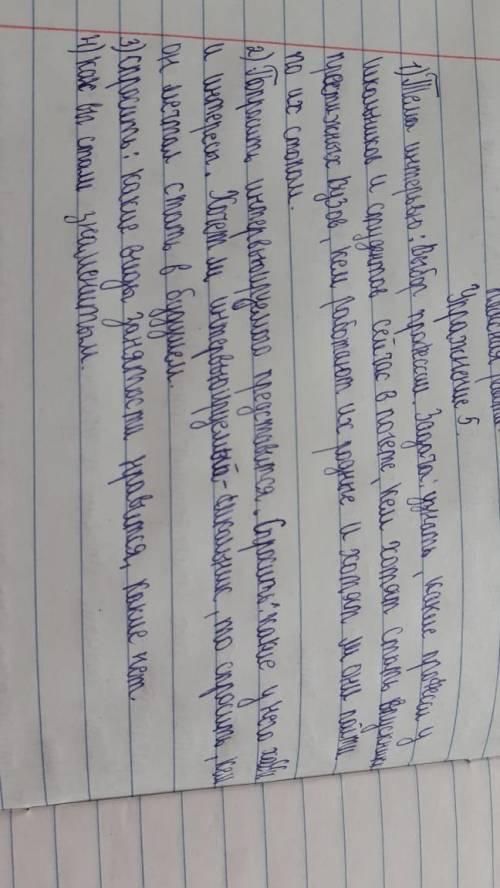 Упражнение 5.
1) Тема интервью: Выбор професси. Задача: узнать, какие професси у
школьников и студентов сейчас в почере, кем хотят стать выпускники
престижных вузов, кем работают их родные и хотят ли они пойти
по их стопам.
2) Попросить интервьюируемого представится. Спросить: какие у него хобби
и интересы. Хочет ли интервьюируемый - школьник, то спросить, кем
он мечтал стать в будущем.
3) спросить: какие виды занятости нравится, какие нет.
4) как вы стали знаменитым.